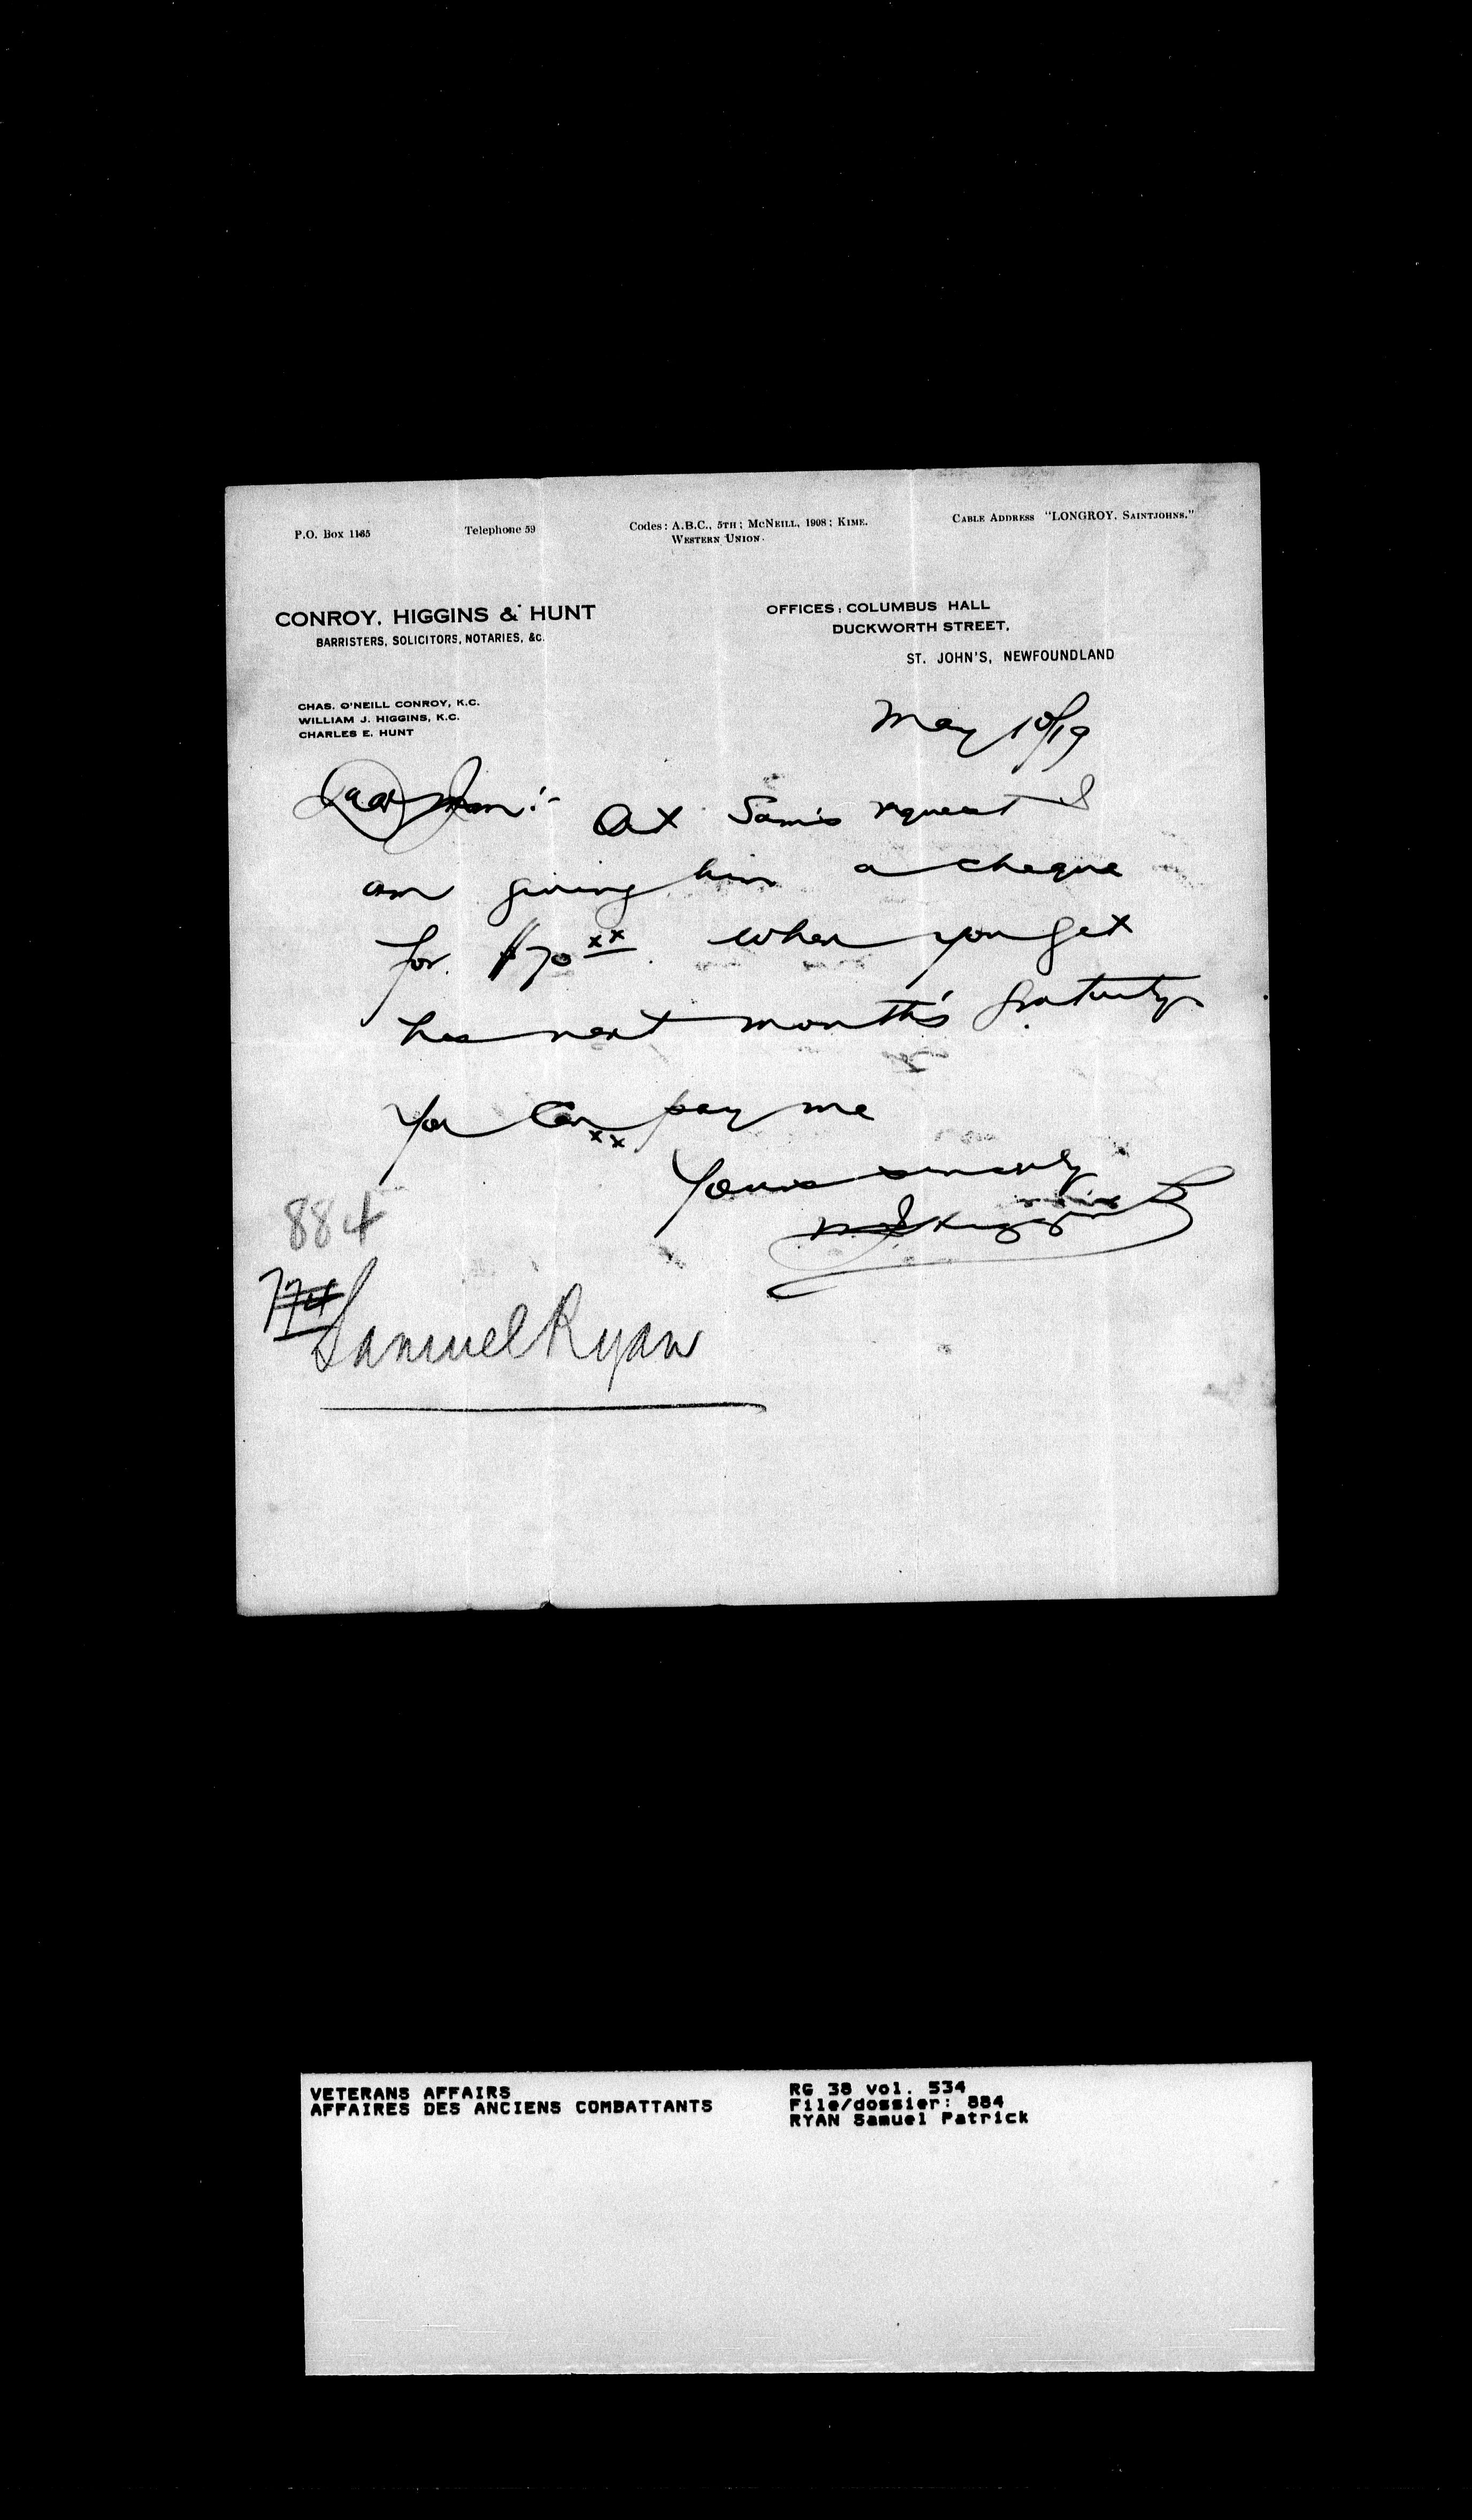 P.O. Box 1165 Telephone 59 Codes: A.B.C., 5TH; McNEILL, 1908; KIME. CABLE ADDRESS "LONGROY. SAINTJOHNS."
WESTERN UNION.
CONROY, HIGGINS & HUNT OFFICES: COLUMBUS HALL
BARRISTERS, SOLICITORS, NOTARIES, &C. DUCKWORTH STREET,
ST. JOHN'S, NEWFOUNDLAND
CHAS. O'NEILL CONROY, K.C.
WILLIAM J. HIGGINS, K.C.
CHARLES E. HUNT
May 10/19
Dear :- At Sam's request I
am giving him a cheque
for $70 xx. When you get
his next month's gratuity
you can pay me
xx
Yours sincerely
W J Higgins
884
774
Samuel Ryan
VETERANS AFFAIRS
AFFAIRES DES ANCIENS COMBATTANTS
RG 38 vol. 534
File/dossier: 884
RYAN Samuel Patrick